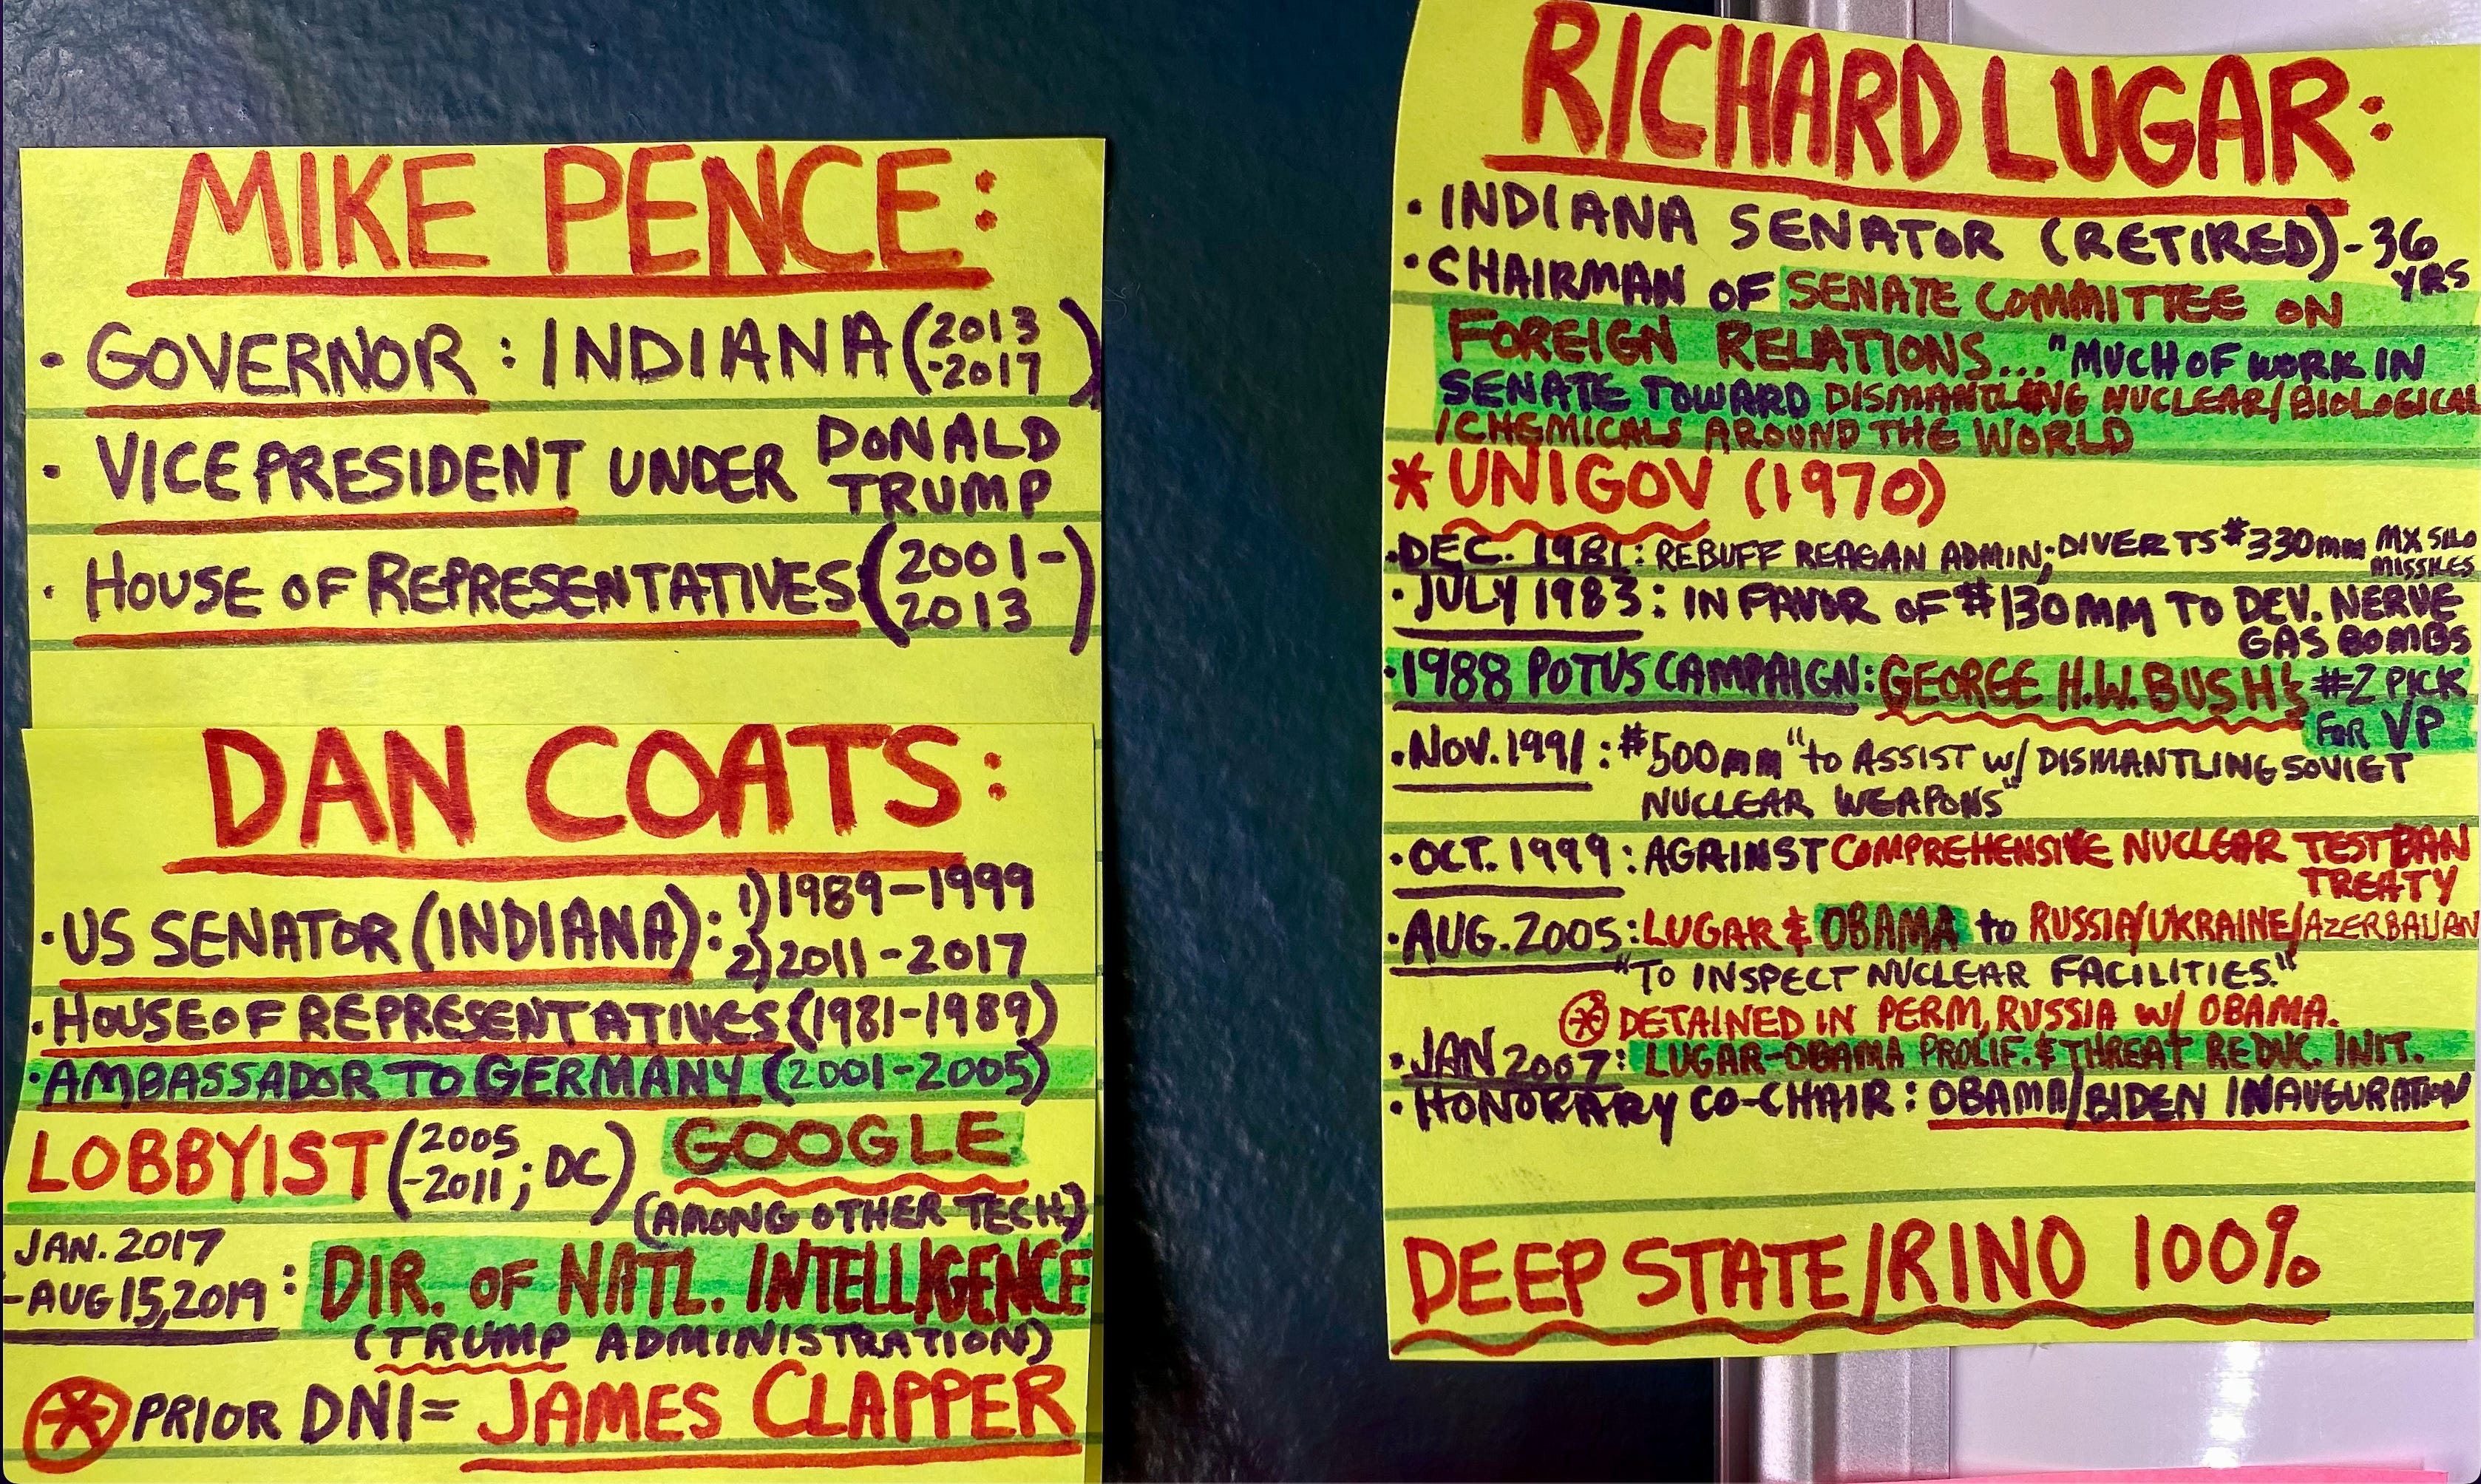 MIKE PENCE:
• GOVERNOR : INDIANA (2013
-2017)
• VICE PRESIDENT UNDER DONALD
TRUMP
• HOUSE OF REPRESENTATIVES (2001-
2013)
DAN COATS:
• US SENATOR (INDIANA): 1) 1989-1999
2) 2011-2017
• HOUSE OF REPRESENTATIVES (1981-1989)
• AMBASSADOR TO GERMANY (2001-2005)
LOBBYIST (2005
-2011; DC) GOOGLE
(AMONG OTHER TECH)
JAN. 2017
-AUG 15, 2019 : DIR. OF NATL. INTELLIGENCE
(TRUMP ADMINISTRATION)
* PRIOR DNI = JAMES CLAPPER
RICHARD LUGAR:
• INDIANA SENATOR (RETIRED) - 36
YRS
• CHAIRMAN OF SENATE COMMITTEE ON
FOREIGN RELATIONS... "MUCH OF WORK IN
SENATE TOWARD DISMANTLING NUCLEAR/BIOLOGICAL
/CHEMICALS AROUND THE WORLD
* UNIGOV (1970)
• DEC. 1981: REBUFF REAGAN ADMIN; DIVERTS $330mm MX SILO
MISSILES
• JULY 1983: IN FAVOR OF $130MM TO DEV. NERVE
GAS BOMBS
• 1988 POTUS CAMPAIGN: GEORGE H.W. BUSH'S #2 PICK
FOR VP
• NOV. 1991: $500mm "to ASSIST w/ DISMANTLING SOVIET
NUCLEAR WEAPONS"
• OCT. 1999: AGAINST COMPREHENSIVE NUCLEAR TEST BAN
TREATY
• AUG. 2005: LUGAR & OBAMA to RUSSIA/UKRAINE/AZERBAIJAN
"TO INSPECT NUCLEAR FACILITIES."
* DETAINED IN PERM, RUSSIA W/ OBAMA.
• JAN 2007: LUGAR-OBAMA PROLIF. & THREAT REDUC. INIT.
• HONORARY CO-CHAIR: OBAMA/BIDEN INAUGURATION
DEEP STATE/RINO 100%